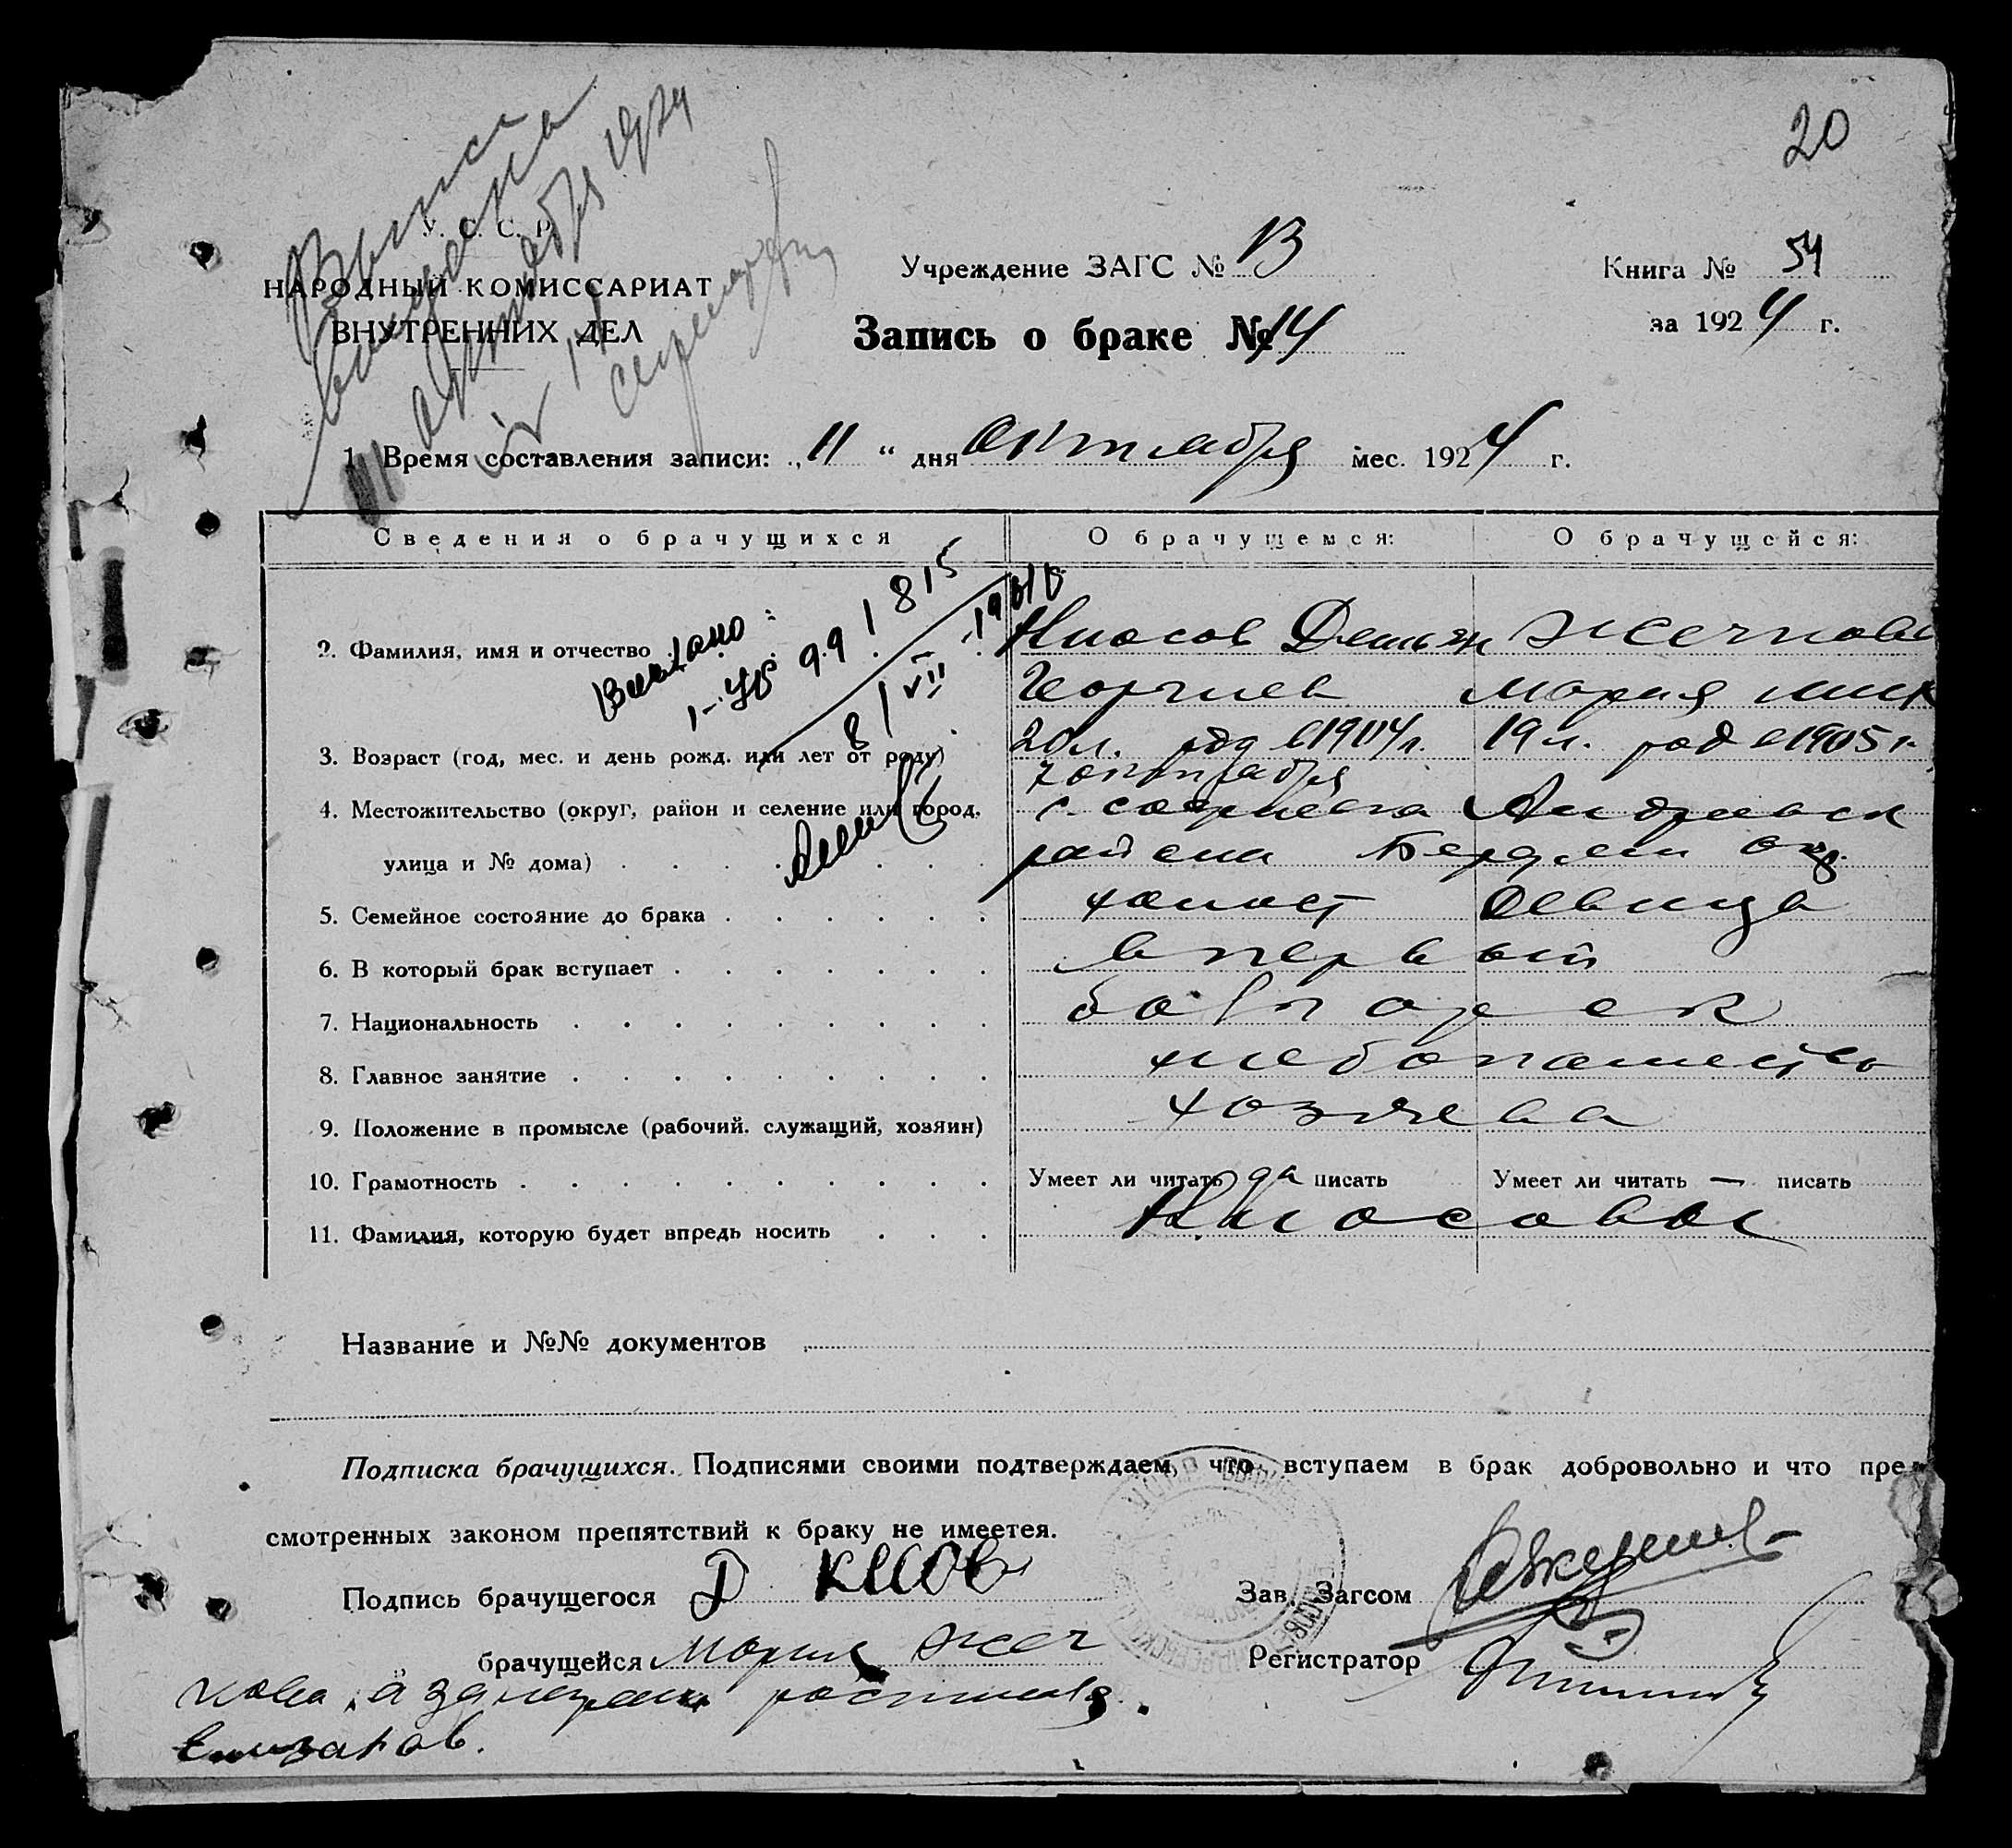 20
Выпись
выдана
11 октября 1924
У. С. С. Р.
НАРОДНЫЙ КОМИССАРИАТ
ВНУТРЕННИХ ДЕЛ
Учреждение ЗАГС № 13
Книга № 54
Запись о браке № 14
за 1924 г.
1. Время составления записи: „11“ дня октября мес. 1924 г.
Сведения о брачущихся О брачущемся: О брачущейся:
2. Фамилия, имя и отчество Кюсов Демьян Жечкова
Георгиев Мария
Выдано:
3. Возраст (год, мес. и день рожд. или лет от роду) 20 л. род в 1904 г. 19 л. род в 1905 г.
7 октября
4. Местожительство (округ, район и селение или город, с. Софиевка Андровск
улица и № дома) района Бердян окр.
5. Семейное состояние до брака холост девица
6. В который брак вступает в первый
7. Национальность болгарек
8. Главное занятие хлебопашество
9. Положение в промысле (рабочий, служащий, хозяин) хозяева
10. Грамотность Умеет ли читать да писать Умеет ли читать — писать
11. Фамилия, которую будет впредь носить Кюсовы
Название и №№ документов
Подписка брачущихся. Подписями своими подтверждаем, что вступаем в брак добровольно и что пред-
смотренных законом препятствий к браку не имеетея.
Подпись брачущегося Д Кюсов Зав. Загсом
брачущейся Мария Жеч Регистратор
кова, а за неграм росписался